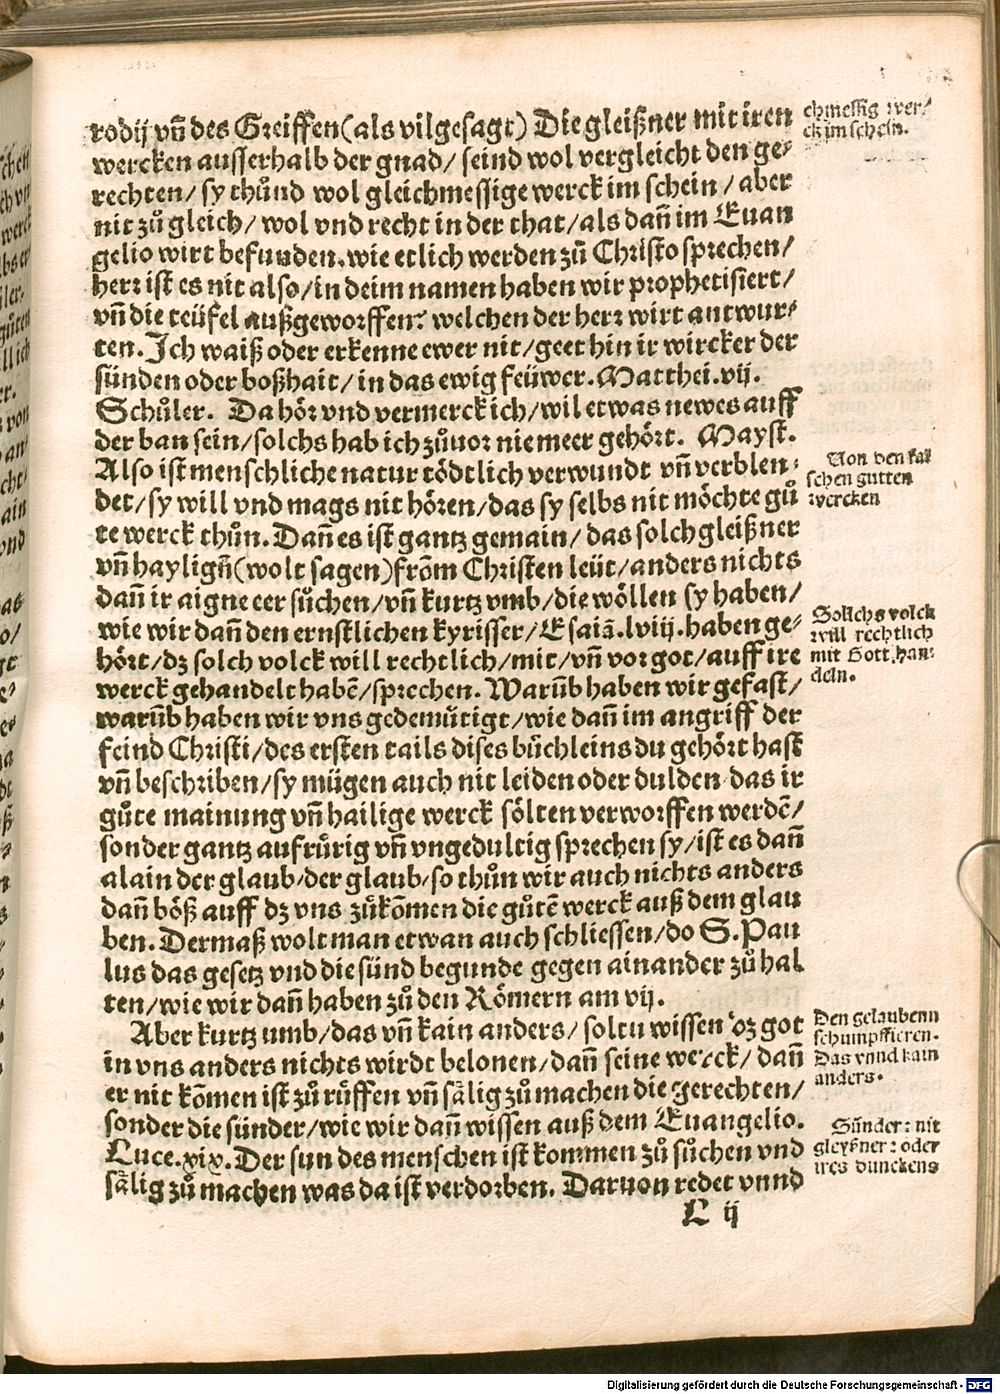 rodij vñ des Greiffen(als vilgesagt) Die gleißner mit iren
wercken ausserhalb der gnad/ seind wol vergleicht den ge⸗
rechten/ sy thůnd wol gleichmessige werck im schein / aber
nit zů gleich/ wol vnd recht in der that/ als dañ im Euan
gelio wirt befunden. wie etlich werden zů Christo sprechen/
herr ist es nit also/ in deim namen haben wir prophetisiert/
vñ die teüfel außgeworffen? welchen der herr wirt antwur⸗
ten. Ich waiß oder erkenne ewer nit/ geet hin ir wircker der
sünden oder boßhait/ in das ewig feüwer. Matthei. vij.
Schůler. Da hör vnd vermerck ich/ wil etwas newes auff
der ban sein/ solchs hab ich zůuor nie meer gehört. Mayst.
Also ist menschliche natur tödtlich verwundt vñ verblen⸗
det/ sy will vnd mags nit hören/ das sy selbs nit möchte gů
te werck thůn. Dañ es ist gantz gemain/ das solch gleißner
vñ hayligñ(wolt sagen)from̃ Christen leüt/ anders nichts
dañ ir aigne eer sůchen/ vñ kurtz vmb/ die wöllen sy haben/
wie wir dañ den ernstlichen kyrisser/ Esaiã. lviij. haben ge⸗
hört/ dz solch volck will rechtlich/ mit/ vñ vor got/ auff ire
werck gehandelt habẽ/ sprechen. Warũb haben wir gefast/
warũb haben wir vns gedemütigt/ wie dañ im angriff der
feind Christi/ des ersten tails dises büchleins du gehört hast
vñ beschriben/ sy mügen auch nit leiden oder dulden das ir
gůte mainung vñ hailige werck sölten verworffen werdẽ/
sonder gantz aufrürig vñ vngedultig sprechen sy/ ist es dañ
alain der glaub/ der glaub/ so thůn wir auch nichts anders
dañ böß auff dz vns zůkõmen die gůtẽ werck auß dem glau
ben. Dermaß wolt man etwan auch schliessen/ do S. Pau
lus das gesetz vnd die sünd begunde gegen ainander zů hal
ten/ wie wir dañ haben zů den Römern am vij.
Aber kurtz umb/ das vñ kain anders/ soltu wissen dz got
in vns anders nichts wirdt belonen/ dañ seine werck/ dañ
er nit kõmen ist zů rüffen vñ sälig zů machen die gerechten/
sonder die sünder/ wie wir dañ wissen auß dem Euangelio.
Luce. xix. Der sun des menschen ist kommen zů sůchen vnd
sälig zů machen was da ist verdorben. Daruon redet vnnd
L ij
chmessig wer⸗
ck im schein.
Von den fal
schen gutten
wercken
Sollichs volck
will rechtlich
mit Gott han⸗
deln.
Den gelaubenn
schumpffieren.
Das vnnd kain
anders.
Sünder: nit
gleyßner: oder
ires dunckens
Digitalisierung gefördert durch die Deutsche Forschungsgemeinschaft - DFG